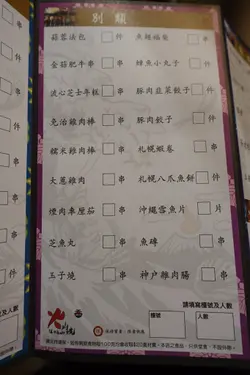 別類
蒜蓉法包 件 魚翅福袋 串
金菇肥牛串 串 鯪魚小丸子 件
流心芝士年糕 串 豚肉韭菜餃子 件
免治雞肉棒 串 豚肉餃子 件
糯米雞肉棒 串 札幌蝦卷 串
大蔥雞肉 串 札幌八爪魚餅 件
煙肉車厘茄 串 沖繩雪魚片 片
芝魚丸 串 魚磚 串
玉子燒 串 神户雜肉腸 串
請填寫檯號及人數
檯號 人數